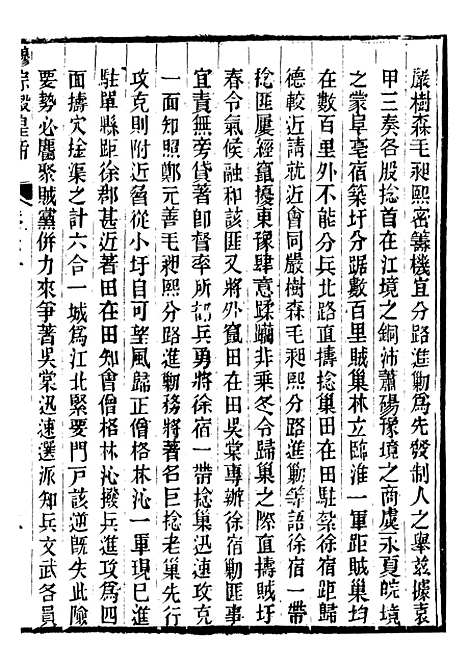 嚴樹森毛昶熙密籌機宜分路進勦爲先發制人之舉兹據袁
甲三奏各股捻首在江境之銅沛蕭碭豫境之商虞永夏皖境
之蒙阜亳宿築圩分踞數百里賊巢林立臨淮一軍距賊巢均
在數百里外不能分兵北路直擣捻巢田在田駐紮徐宿距歸
德較近請就近會同嚴樹森毛昶熙分路進勦等語徐宿一帶
捻匪屢經竄擾東豫肆意蹂躪非乘冬令歸巢之際直擣賊圩
春令氣候融和該匪又將外竄田在田吳棠專辦徐宿勦匪事
宜責無旁貸著卽督率所部兵勇將徐宿一帶捻巢迅速攻克
一面知照鄭元善毛昶熙分路進勦務將著名巨捻老巢先行
攻克則附近脅從小圩自可望風歸正僧格林沁一軍現已進
駐單縣距徐郡甚近著田在田知會僧格林沁撥兵進攻爲四
面擣穴擒渠之計六合一城爲江北緊要門戶該逆旣失此險
要勢必麕聚賊黨併力來爭著吳棠迅速選派知兵文武各員